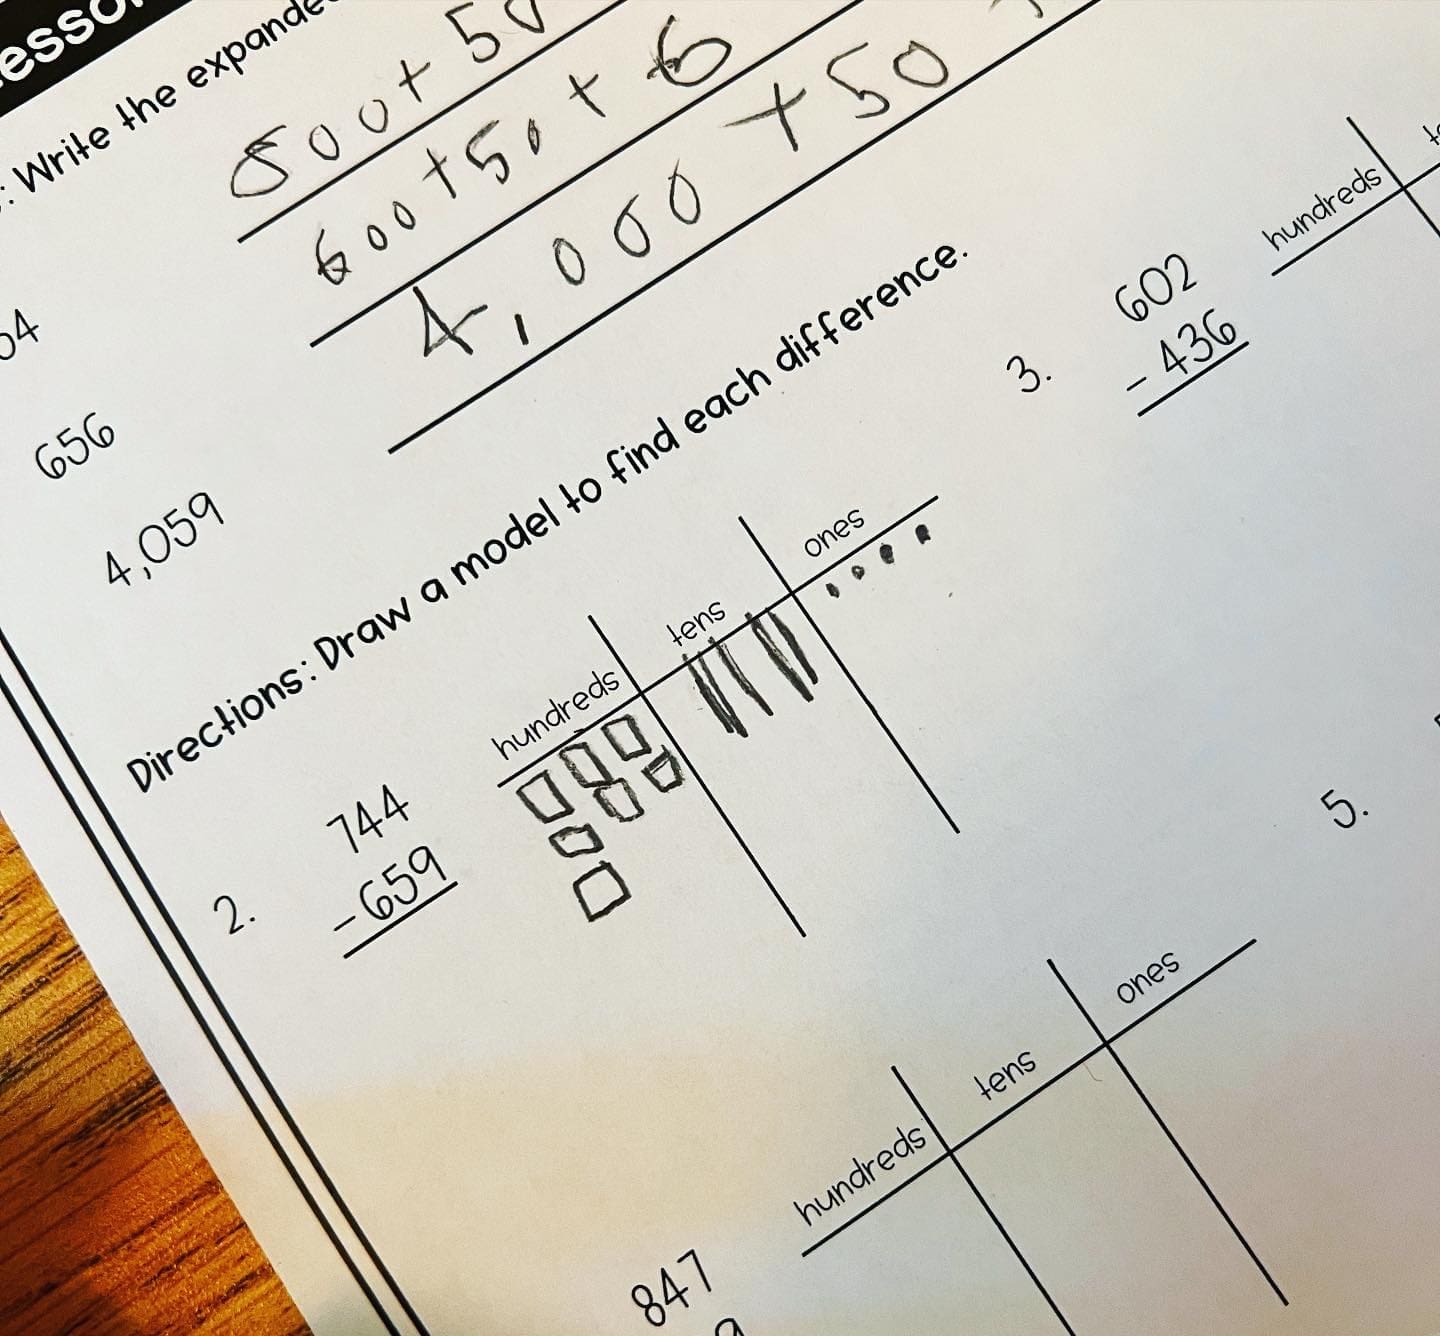 : Write the expanded
04
800 + 50
656
600 + 50 + 6
4,059
4,000 + 50
Directions: Draw a model to find each difference.
2.
744
- 659
hundreds tens ones
3.
602
- 436
hundreds
847
hundreds tens ones
5.